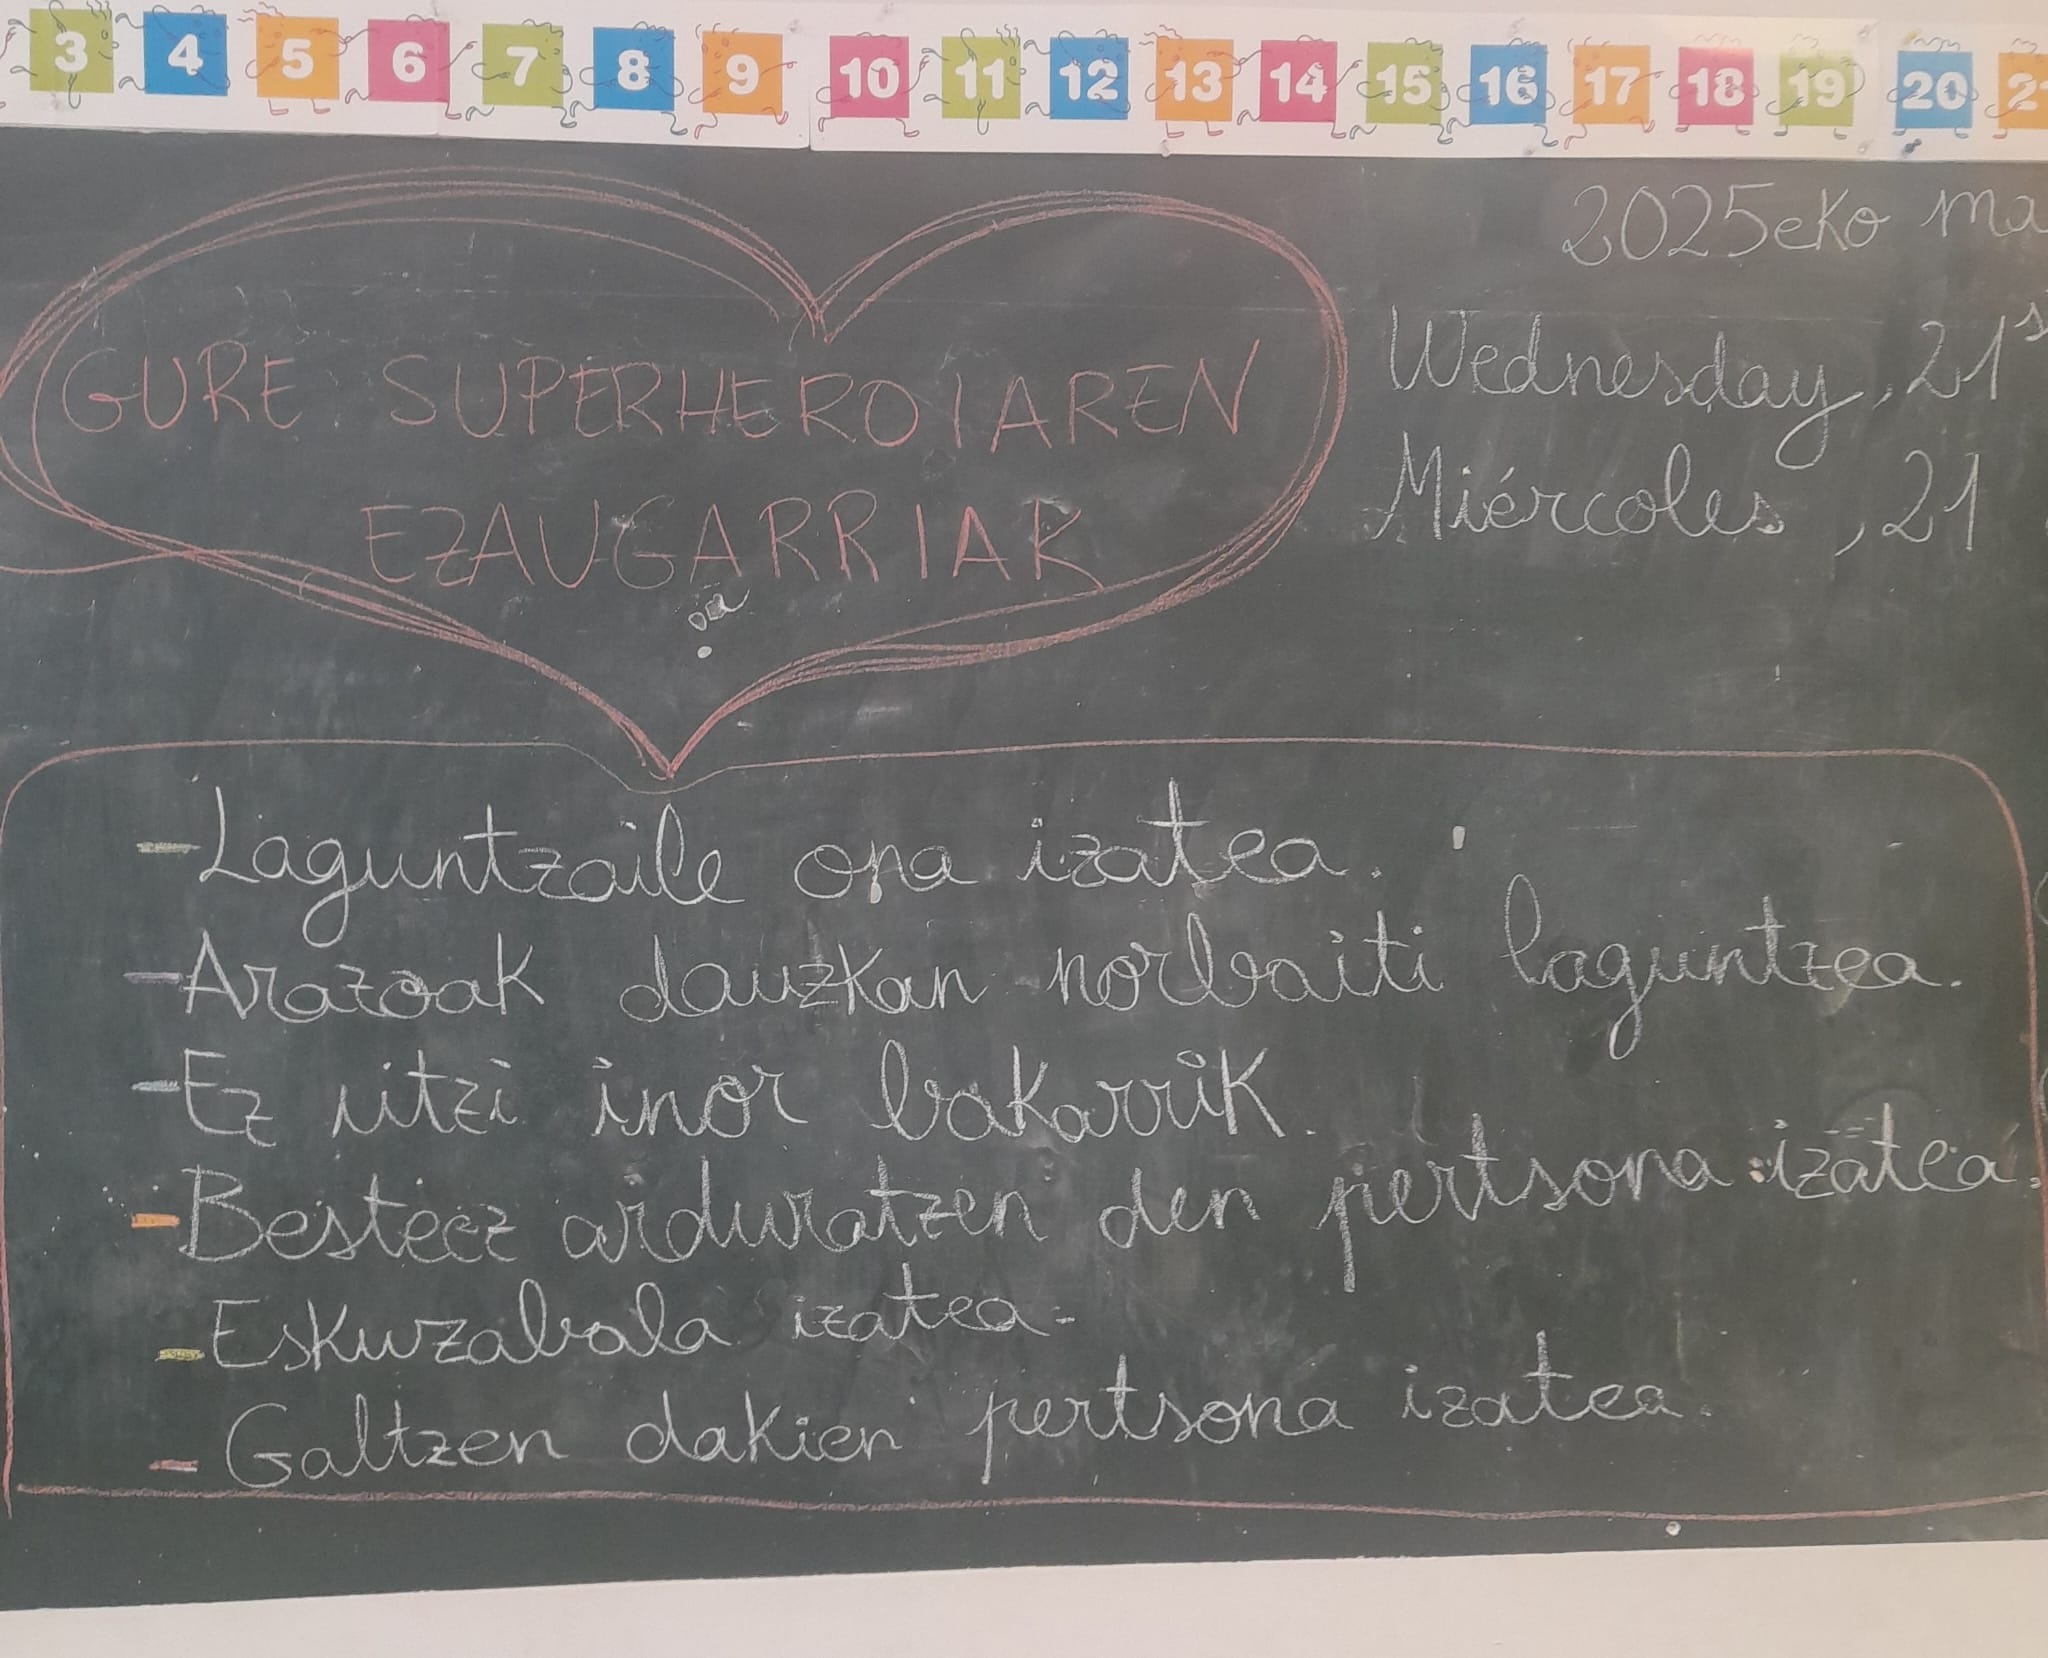 3 4 5 6 7 8 9 10 11 12 13 14 15 16 17 18 19 20
2025eko
Wednesday, 21
Miércoles, 21
GURE SUPERHEROIAREN
EZAUGARRIAK
- Laguntzaile ona izatea.
- Arazoak dauzkan norbaiti laguntzea.
- Ez utzi inor bakarrik.
- Besteez arduratzen den pertsona izatea.
- Eskuzabala izatea.
- Galtzen dakien pertsona izatea.